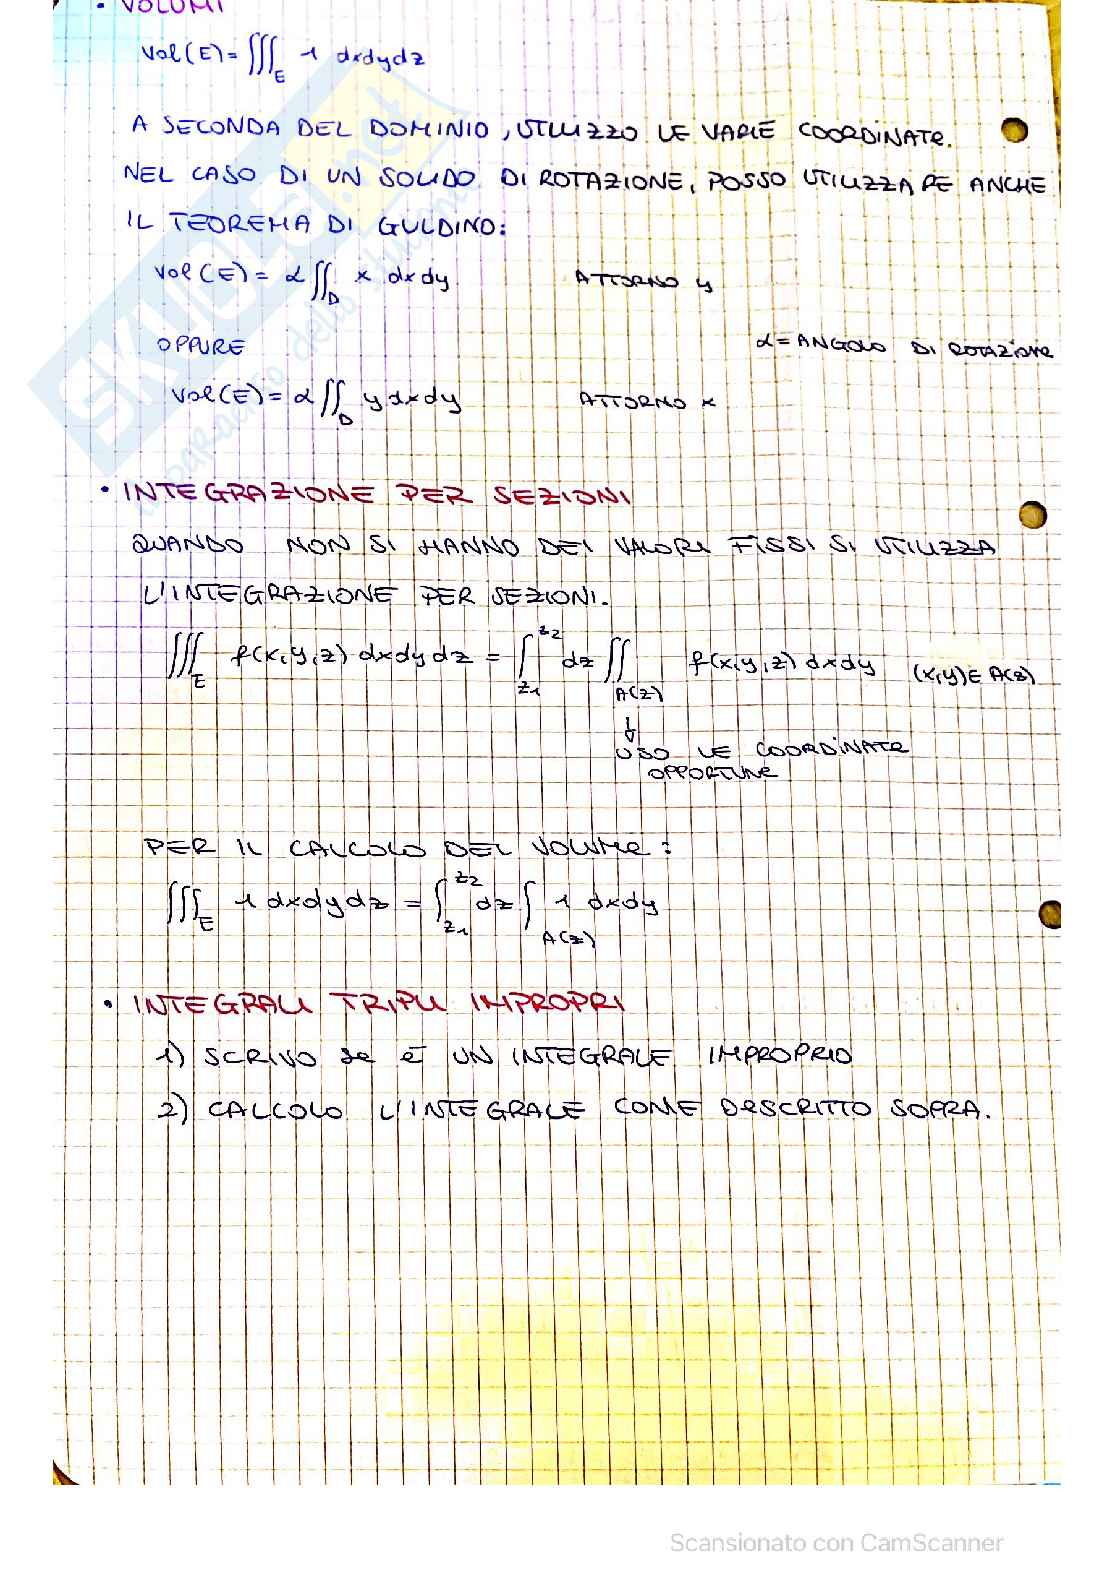 • VOLUMI
Vol(E)=∭_E 1 dxdydz
A SECONDA DEL DOMINIO, UTILIZZO LE VARIE COORDINATE.
NEL CASO DI UN SOLIDO DI ROTAZIONE, POSSO UTILIZZARE ANCHE
IL TEOREMA DI GULDINO:
Vol(E)= α∬_D x dxdy ATTORNO y
OPPURE α=ANGOLO DI ROTAZIONE
Vol(E)= α∬_D y dxdy ATTORNO x
• INTEGRAZIONE PER SEZIONI
QUANDO NON SI HANNO DEI VALORI FISSI SI UTILIZZA
L'INTEGRAZIONE PER SEZIONI.
∭_E f(x,y,z) dxdydz = ∫_z1^z2 dz ∬_A(z) f(x,y,z) dxdy (x,y)∈A(z)
↓
USO LE COORDINATE
OPPORTUNE
PER IL CALCOLO DEL VOLUME:
∭_E 1 dxdydz = ∫_z1^z2 dz ∫_A(z) 1 dxdy
• INTEGRALI TRIPLI IMPROPRI
1) SCRIVO SE È UN INTEGRALE IMPROPRIO
2) CALCOLO L'INTEGRALE COME DESCRITTO SOPRA.
SKUOLA.net
Scansionato con CamScanner